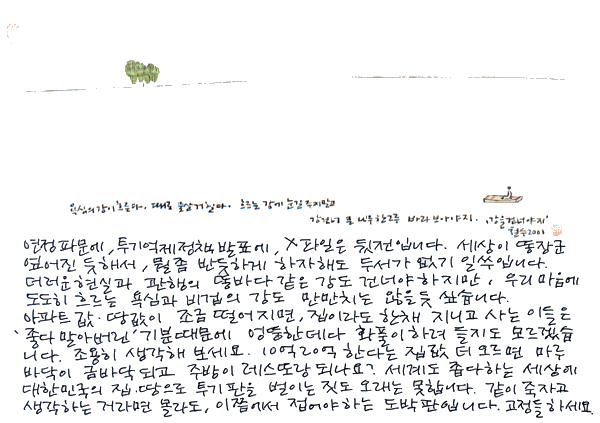 욕심의 강이 흐른다. 때로 물살 거칠다. 흐르는 강에 눈길 주지말고
강건너 푸른 나무 한그루 바라보아야지. '강을건너야지'
철수2001
연정파문에, 투기억제정책 발표에, X파일은 뒷전입니다. 세상이 똥장군
엎어진 듯해서, 뭘좀 반듯하게 하자해도 두서가 없기 일쑤입니다.
더러운 현실과 관행의 똥바다 같은 강도 건너야 하지만, 우리 마음에
도도히 흐르는 욕심과 비겁의 강도 만만치는 않을듯 싶습니다.
아파트값·땅값이 조금 떨어지면, 집이라도 한채 지니고 사는 이들은
'좋다 말아버린' 기분때문에 엉뚱한데다 화풀이하려 들지도 모르겠습
니다. 조용히 생각해 보세요. 10억20억 한다는 집값 더 오르면 마루
바닥이 금바닥 되고 주방이 레스토랑 되나요? 세계도 좁다하는 세상에
대한민국의 집·땅으로 투기판을 벌이는 짓도 오래는 못합니다. 같이 죽자고
생각하는 거라면 몰라도, 이쯤에서 접어야하는 도박판입니다. 고정들하세요.